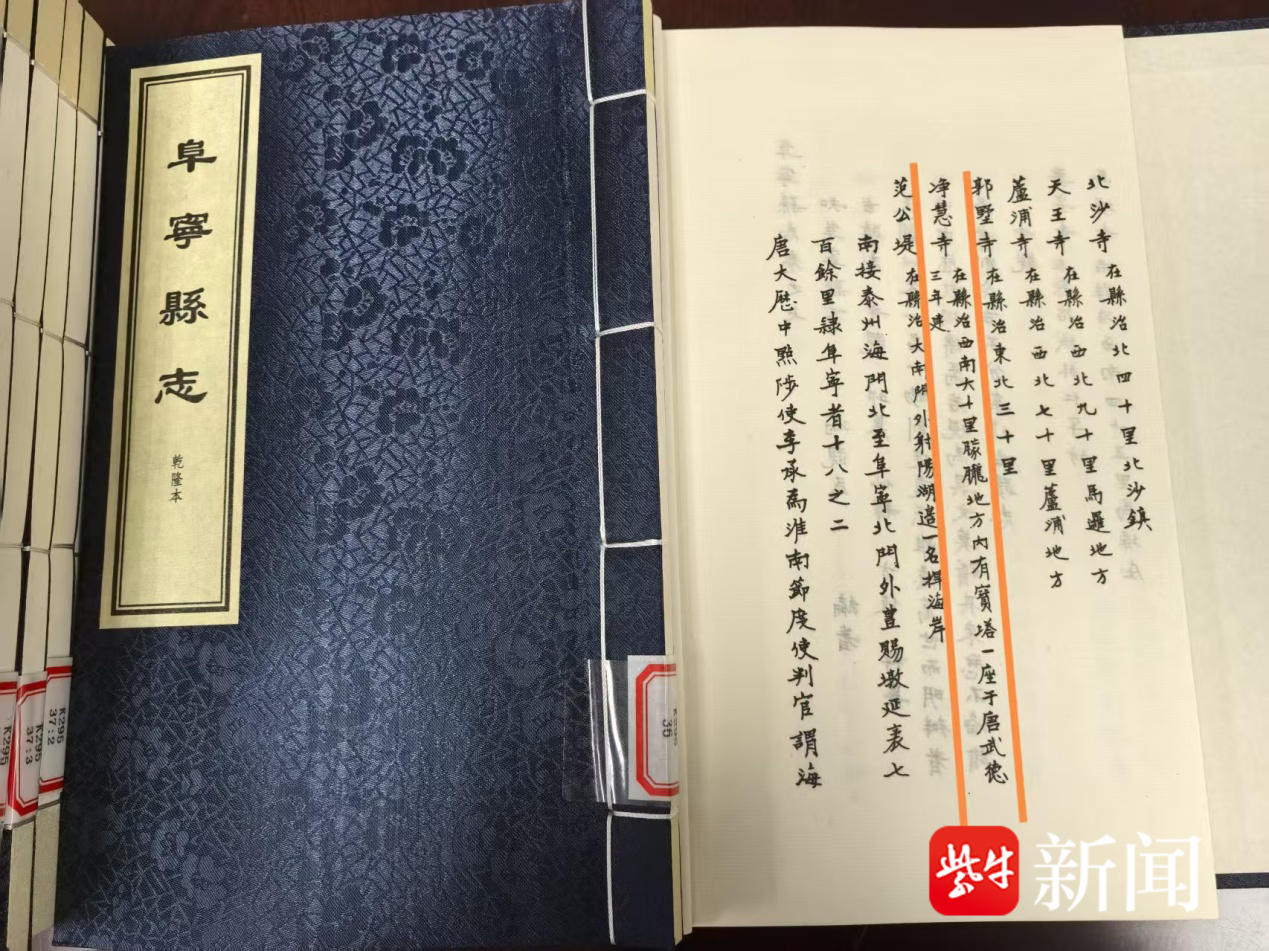 阜寧縣志
乾隆本
北沙寺 在縣治北四十里北沙鎮
天王寺 在縣治西北九十里馬邏地方
蘆浦寺 在縣治西北七十里蘆浦地方
郭墅寺 在縣治東北三十里
净慧寺 在縣治西南大十里朦朧地方內有寳塔一座于唐武德
三年建
范公堤 在縣治大南門外射陽湖邊一名捍海岸
南接泰州海門北至阜寧北門外豊賜墩延袤七
百餘里隷阜寧者十八之二
唐大歷中黜陟使李承為淮南節度使判官謂海
K295
37:3
K295
37:2
K295
36
紫牛
新闻